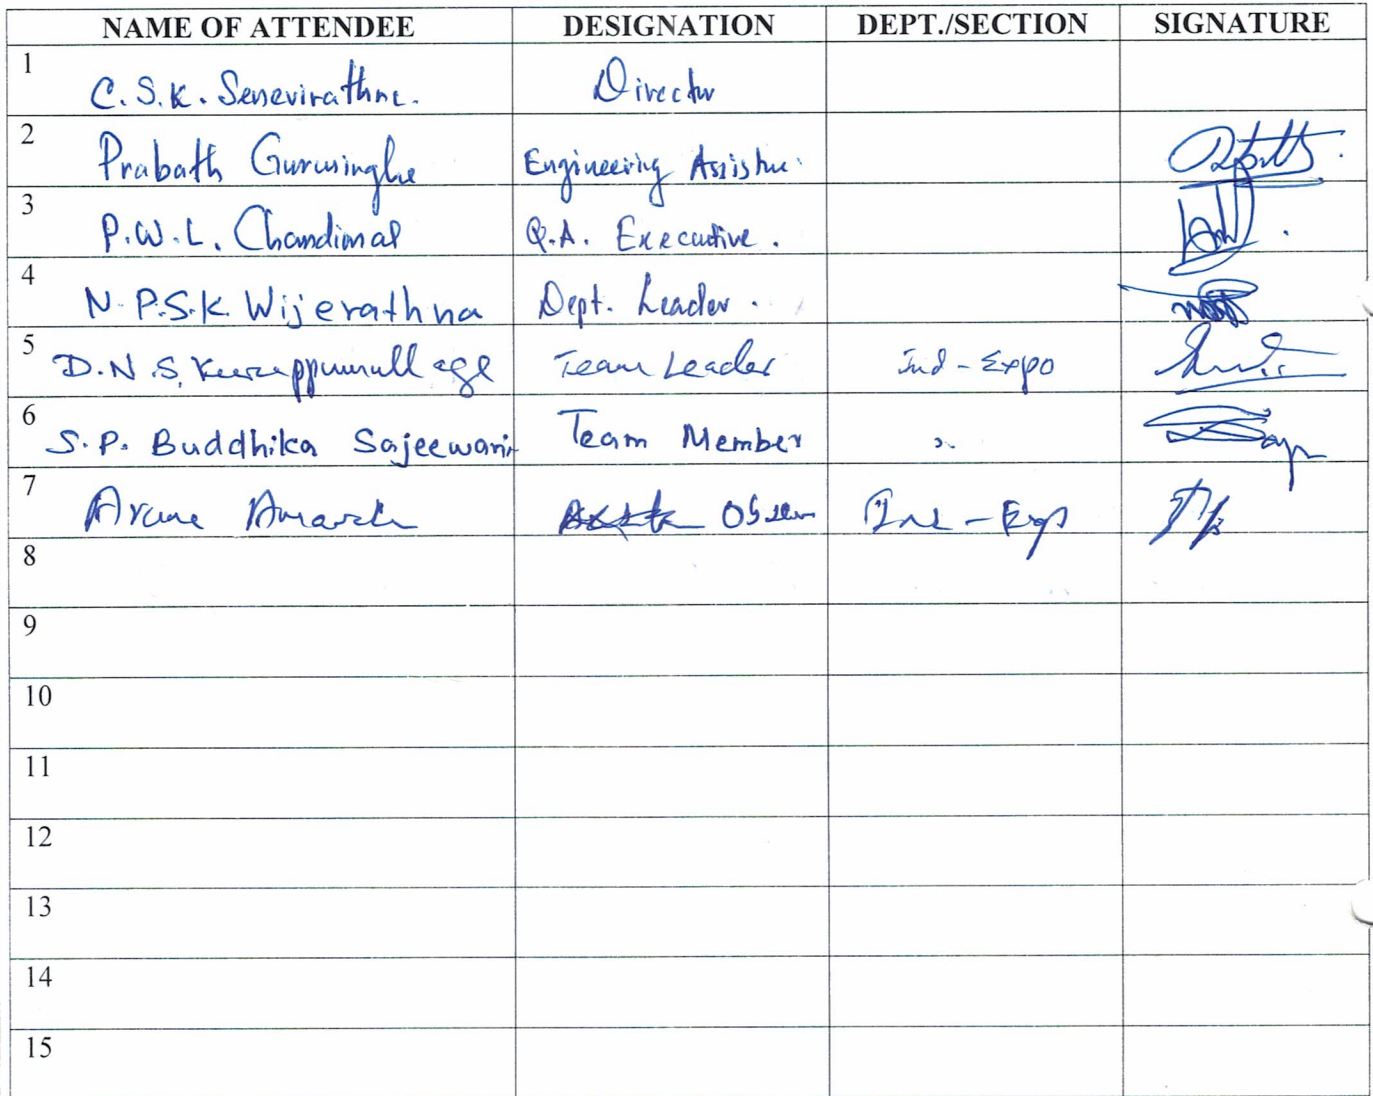 NAME OF ATTENDEE DESIGNATION DEPT./SECTION SIGNATURE
1 C.S.K. Senevirathne. Director
2 Prabath Gurusinghe Engineering
3 P.W.L. Chandimal Q.A. Executive.
4 N.P.S.K. Wijerathna Dept. Leader.
5 D.N.S. Team Leader Ind - Expo
6 S.P. Buddhika Sajeewani Team Member "
7
8
9
10
11
12
13
14
15